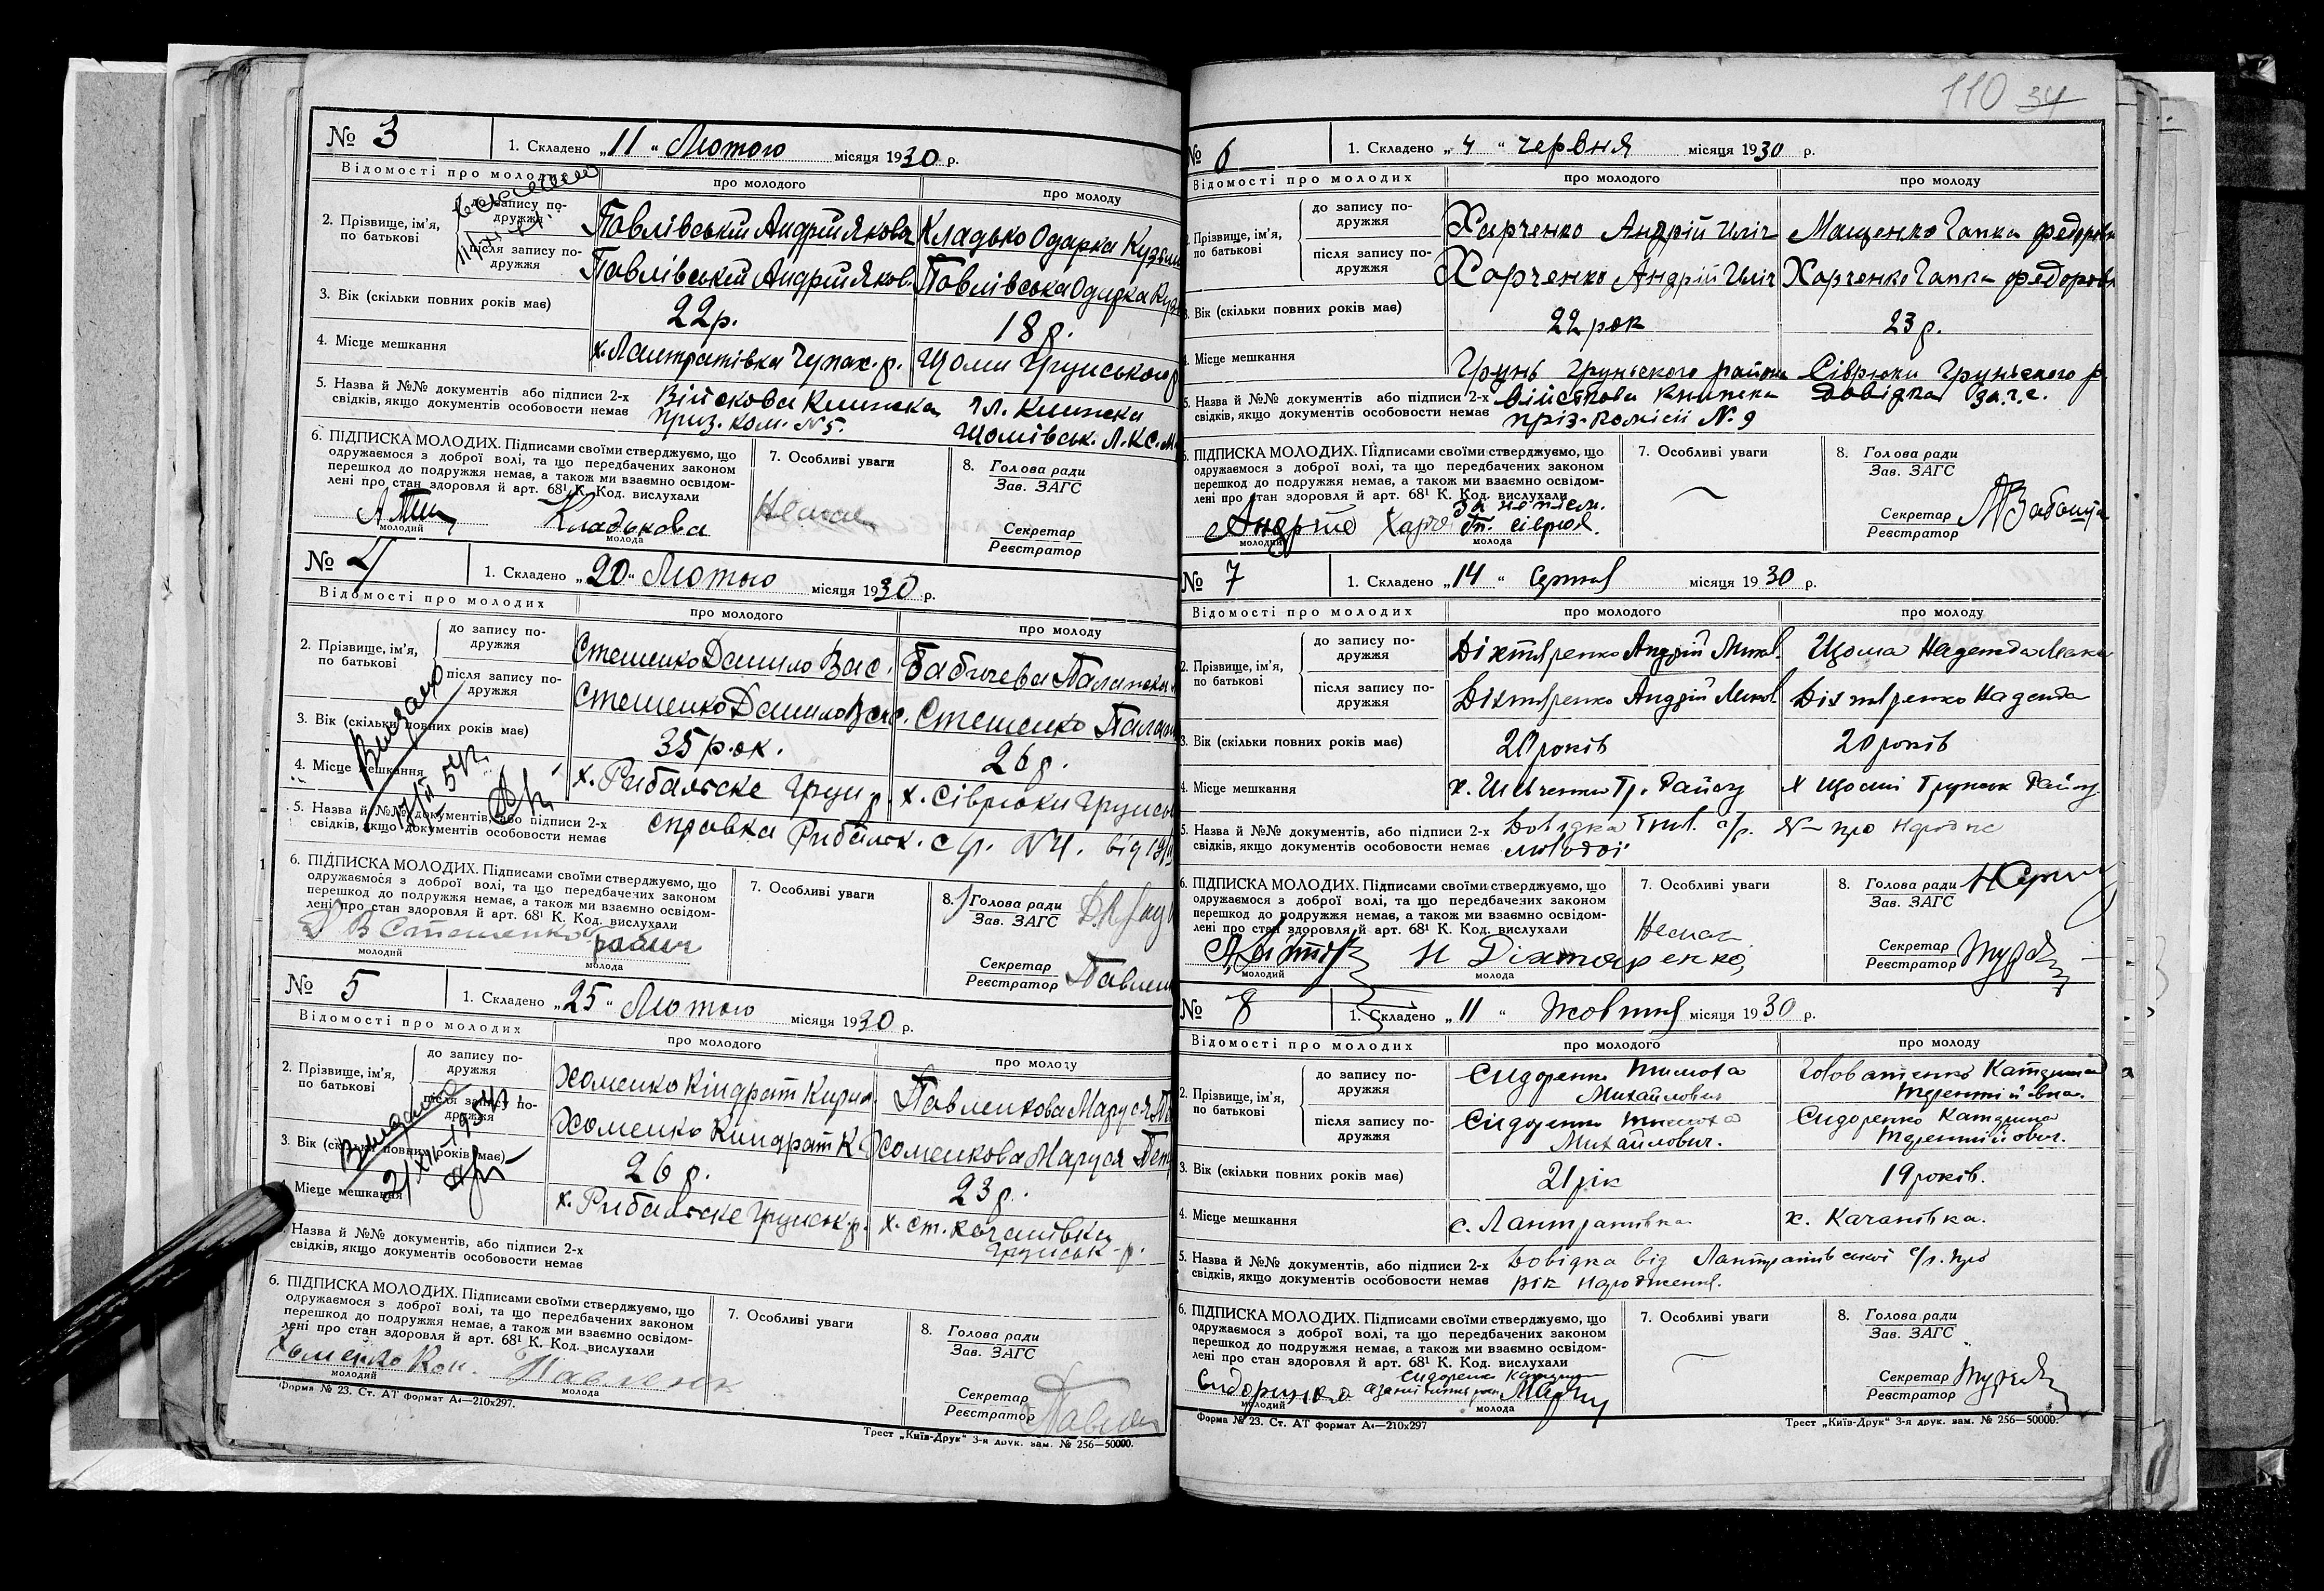 110 34
№ 3
1. Складено „11“ Лютого місяця 1930 р.
Відомості про молодих
про молодого
про молоду
2. Прізвище, ім'я, по батькові
до запису подружжя
Павлівський Андрій Якова
Кладько Одарка Кузьм
після запису подружжя
Павлівський Андрій Яков.
Павлівська Одарка Куз
3. Вік (скільки повних років має)
22р.
18 р.
4. Місце мешкання
х. Лантратівка Чупах. р.
Щоми Грунського р
5. Назва й №№ документів або підписи 2-х
свідків, якщо документів особовости немає
Військова Книжка
приз. ком. №5.
чл. Книжка
Щомівськ. Л.К.С.М
6. ПІДПИСКА МОЛОДИХ. Підписами своїми стверджуємо, що
одружаємося з доброї волі, та що передбачених законом
перешкод до подружжя немає, а також ми взаємно освідом-
лені про стан здоровля й арт. 68¹ К. Код. вислухали
молодий
Кладькова
молода
7. Особливі уваги
Немає
8. Голова ради
Зав. ЗАГС
Секретар
Реєстратор
№ 4
1. Складено „20“ Лютого місяця 1930 р.
Відомості про молодих
про молодого
про молоду
2. Прізвище, ім'я, по батькові
до запису подружжя
Стешенко Данило Вас.
Бабичева Палажка
після запису подружжя
Стешенко Данило Вас.
Стешенко
3. Вік (скільки повних років має)
35 рок.
26 р.
4. Місце мешкання
х. Рибальське Грун р.
х. Сіврюки Грунсь
5. Назва й №№ документів, або підписи 2-х
свідків, якщо документів особовости немає
Справка Рибальск. с/р. №4. від 19
Видано
6. ПІДПИСКА МОЛОДИХ. Підписами своїми стверджуємо, що
одружаємося з доброї волі, та що передбачених законом
перешкод до подружжя немає, а також ми взаємно освідом-
лені про стан здоровля й арт. 68¹ К. Код. вислухали
Д В Стешенко
молодий
молода
7. Особливі уваги
8. Голова ради
Зав. ЗАГС
Секретар
Реєстратор
№ 5
1. Складено „25“ Лютого місяця 1930 р.
Відомості про молодих
про молодого
про молоду
2. Прізвище, ім'я, по батькові
до запису подружжя
Хоменко Кіндрат Кирил
Павленкова Маруся
після запису подружжя
Хоменко Киндрат К
Хоменкова Маруся Пет
3. Вік (скільки повних років має)
26 р.
23 р.
4. Місце мешкання
х. Рибальске Грунськ. р.
х. ст. Качанівка
Грунськ. р.
5. Назва й №№ документів, або підписи 2-х
свідків, якщо документів особовости немає
Видано
6. ПІДПИСКА МОЛОДИХ. Підписами своїми стверджуємо, що
одружаємося з доброї волі, та що передбачених законом
перешкод до подружжя немає, а також ми взаємно освідом-
лені про стан здоровля й арт. 68¹ К. Код. вислухали
Хоменко Кон.
молодий
Павленк
молода
7. Особливі уваги
8. Голова ради
Зав. ЗАГС
Секретар
Реєстратор
Форма № 23. Ст. АТ формат А₄—210х297.
Трест „Київ-Друк“ 3-я друк. зам. № 256—50000.
№ 6
1. Складено „4“ червня місяця 1930 р.
Відомості про молодих
про молодого
про молоду
Прізвище, ім'я, по батькові
до запису подружжя
Харченко Андрій Ілліч
Мащенко Гапка Федоровн
після запису подружжя
Харченко Андрій Ілліч
Харченко Гапка Федоров
3. Вік (скільки повних років має)
22 рок
23 р.
4. Місце мешкання
Грунь Груньского района
Сіврюки Груньского р.
5. Назва й №№ документів або підписи 2-х
свідків, якщо документів особовости немає
Війскова книжка
пріз. комісіі №. 9
Довідка за.г.с.
6. ПІДПИСКА МОЛОДИХ. Підписами своїми стверджуємо, що
одружаємося з доброї волі, та що передбачених законом
перешкод до подружжя немає, а також ми взаємно освідом-
лені про стан здоровля й арт. 68¹ К. Код. вислухали
молодий
молода
7. Особливі уваги
8. Голова ради
Зав. ЗАГС
Секретар
Реєстратор
№ 7
1. Складено „14“ Серпня місяця 1930 р.
Відомості про молодих
про молодого
про молоду
2. Прізвище, ім'я, по батькові
до запису подружжя
Діхтяренко Андрій Микол.
Щома Надежда
після запису подружжя
Діхтяренко Андрій Микол
Діхтяренко Надежда
3. Вік (скільки повних років має)
20 років
20 років
4. Місце мешкання
х. Шевченки Гр. Району
х Щомі Грунськ Району
5. Назва й №№ документів, або підписи 2-х
свідків, якщо документів особовости немає
Довідка с/р. № про
молодої
6. ПІДПИСКА МОЛОДИХ. Підписами своїми стверджуємо, що
одружаємося з доброї волі, та що передбачених законом
перешкод до подружжя немає, а також ми взаємно освідом-
лені про стан здоровля й арт. 68¹ К. Код. вислухали
молодий
Н Діхтяренко
молода
7. Особливі уваги
Немає
8. Голова ради
Зав. ЗАГС
Секретар
Реєстратор
№ 8
1. Складено „11“ Жовтня місяця 1930 р.
Відомості про молодих
про молодого
про молоду
2. Прізвище, ім'я, по батькові
до запису подружжя
Сидоренко Тимоха
Михайлович
Головатенко Катерина
Терентіївна.
після запису подружжя
Сидоренко Тимоха
Михайлович.
Сидоренко Катерина
Терентійович.
3. Вік (скільки повних років має)
21 рік
19 років.
4. Місце мешкання
с. Лантратівка
х. Качанівка.
5. Назва й №№ документів, або підписи 2-х
свідків, якщо документів особовости немає
Довідка від Лантратівської с/р. про
рік народження.
6. ПІДПИСКА МОЛОДИХ. Підписами своїми стверджуємо, що
одружаємося з доброї волі, та що передбачених законом
перешкод до подружжя немає, а також ми взаємно освідом-
лені про стан здоровля й арт. 68¹ К. Код. вислухали
молодий
молода
7. Особливі уваги
8. Голова ради
Зав. ЗАГС
Секретар
Реєстратор
Форма № 23. Ст. АТ формат А₄—210х297
Трест „Київ-Друк“ 3-я друк. зам. № 256—50000.